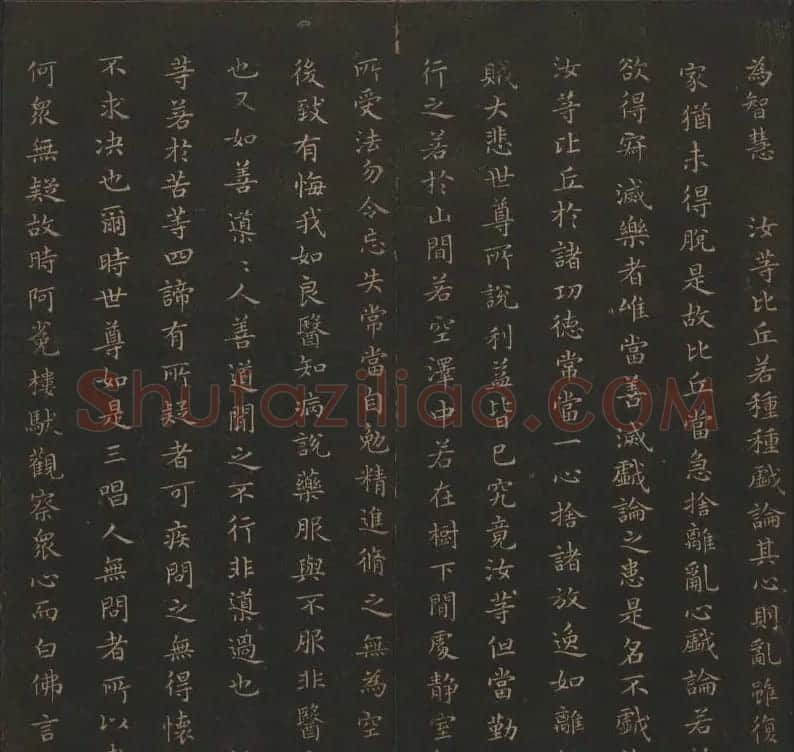 為智慧　汝等比丘若種種戲論其心則亂雖復
家猶未得脫是故比丘當急捨離亂心戲論若
欲得寂滅樂者唯當善滅戲論之患是名不戲
汝等比丘於諸功德常當一心捨諸放逸如離
賊大悲世尊所說利益皆已究竟汝等但當勤
行之若於山間若空澤中若在樹下閒處靜室
所受法勿令忘失常當自勉精進脩之無為空
後致有悔我如良醫知病說藥服與不服非醫
也又如善導〻人善道聞之不行非導過也
等若於苦等四諦有所疑者可疾問之無得懷
不求决也爾時世尊如是三唱人無問者所以
何眾無疑故時阿㝹樓馱觀察眾心而白佛言
Shufaziliao.COM